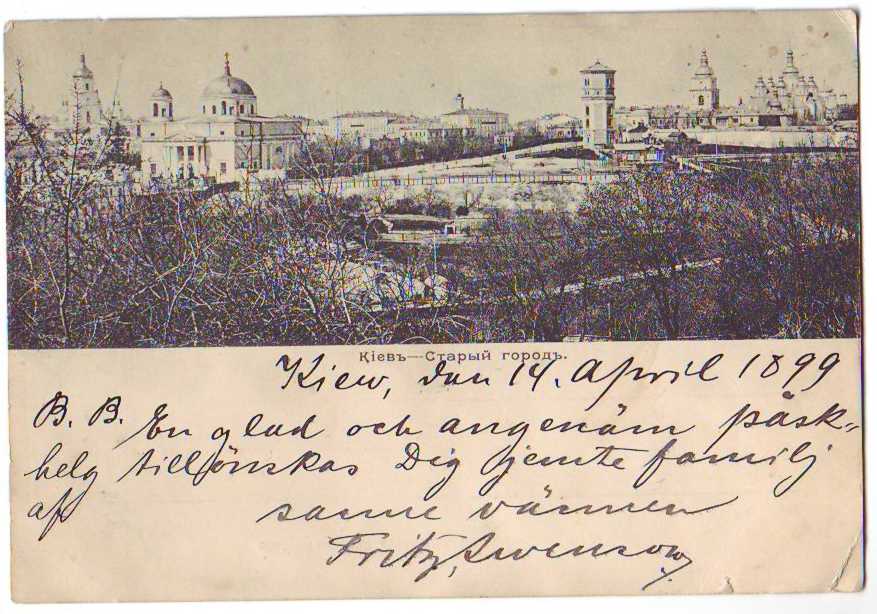 Кіевъ—Старый городъ.
Kiew, den 14. April 1899
B. B. En glad och angenäm påsk-
helg tillönskas Dig jemte familj
af sanne vännen
Fritz Swenson